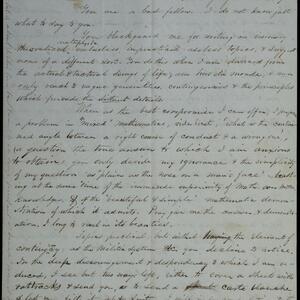 You are a bad fellow. I do not know just
what to say to you.
You blackguard me for writing on visionary
metaphysical
theoretical, fruitless, impractical, useless topics, & suggest
ones of a different sort. You do this when I am divorced from
the actual & tactical doings of life,
only reach to vague generalities, contingencies & the principles
which pervade the distinct details.
Then as the best compromise I can offer, I propose
a problem in "mixed" mathematics, videlicet, what is the contained
angle between a right course of conduct & a wrong one,
a question the true answer to which I am anxious
to obtain. You only deride my ignorance & the simplicity
of my question "as plain as the nose on a man's face",
ing at the same time of the immense superiority of Math. over
knowledge, & of the "beautiful & simple" mathematic demon-
stration of which it admits. Pray give me the answer, & demonstra-
tion, I long to revel in its beauties.
Topics practical, but actual having the element of
contingency, as the Militia System &c, you decline to notice.
In the deep discouragement & despondency to which I am re-
duced, I see but two ways left, either to cover a sheet with
& send you, or to send a carte blanche